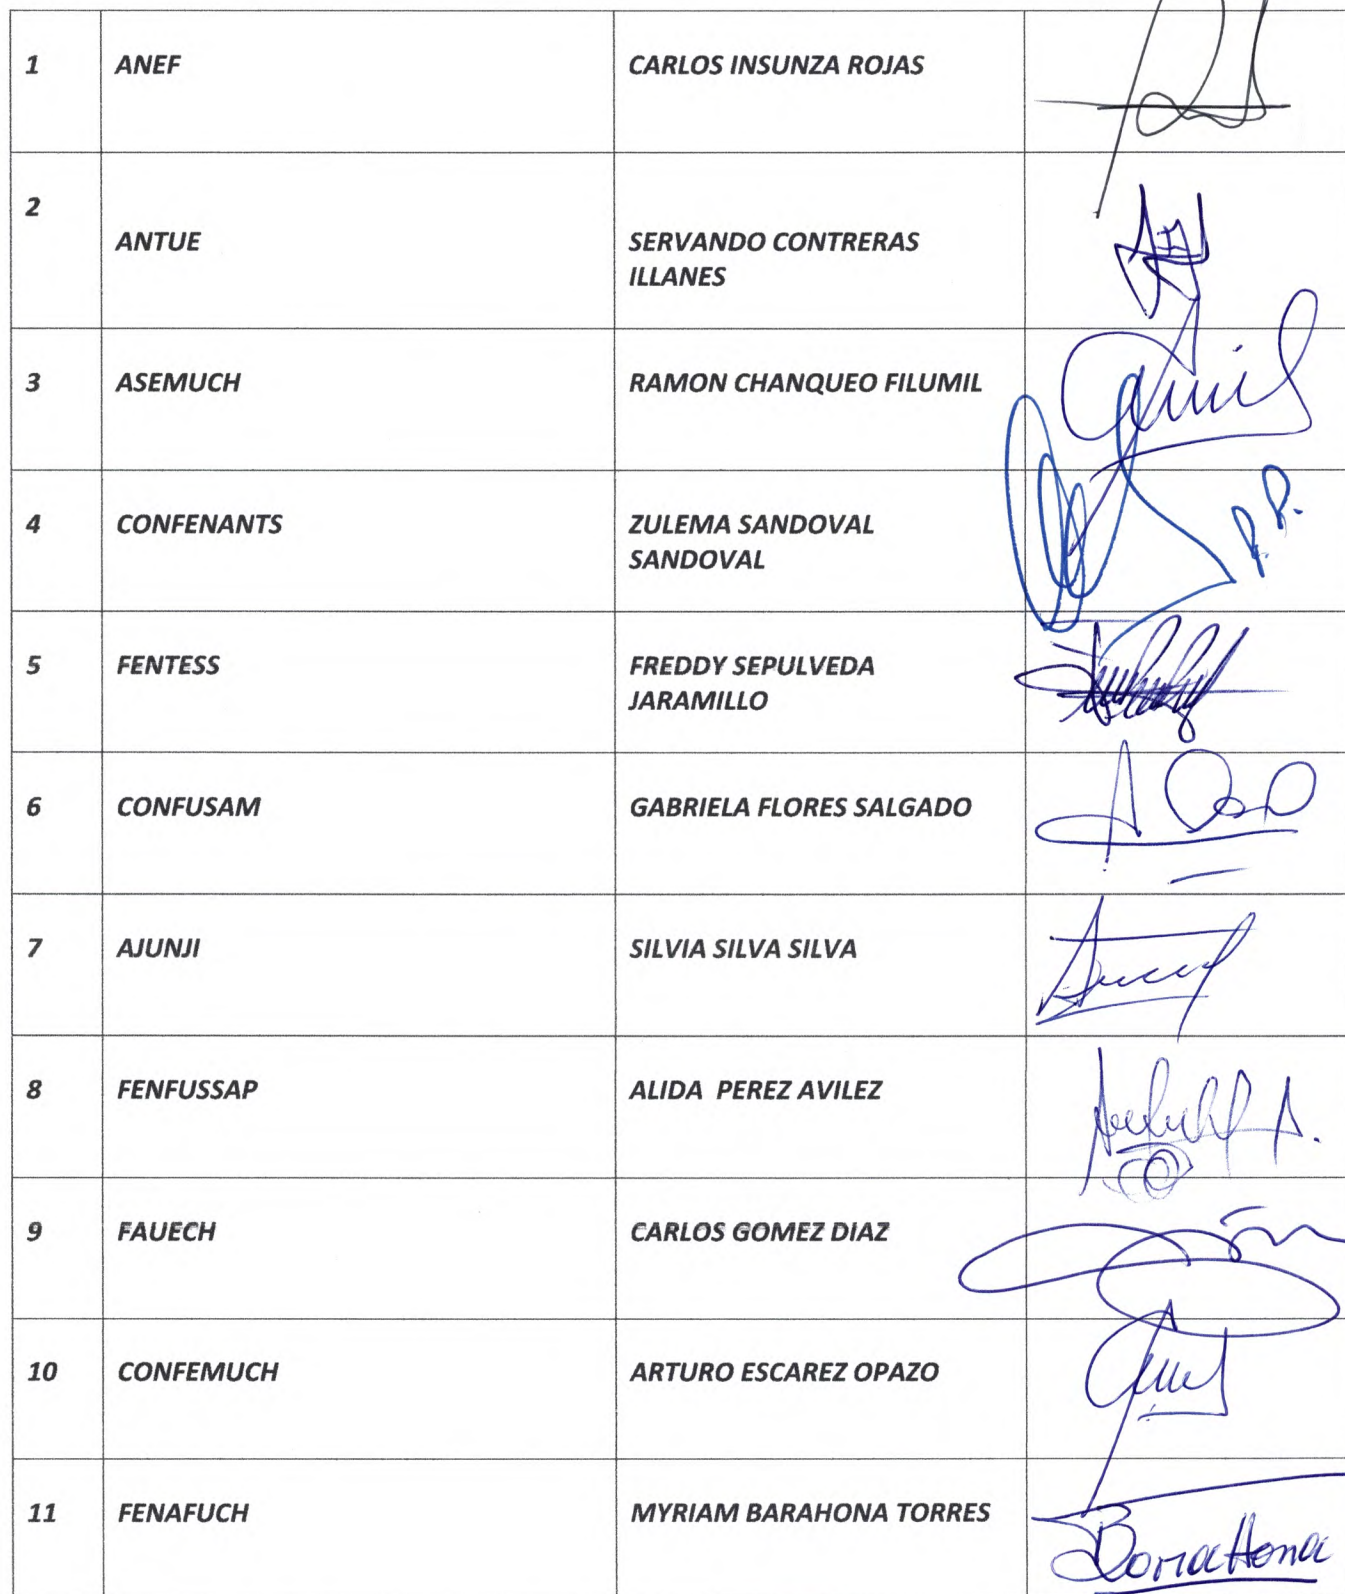 1 ANEF CARLOS INSUNZA ROJAS
2
ANTUE SERVANDO CONTRERAS
ILLANES
3 ASEMUCH RAMON CHANQUEO FILUMIL
4 CONFENANTS ZULEMA SANDOVAL
SANDOVAL
P.P.
5 FENTESS FREDDY SEPULVEDA
JARAMILLO
6 CONFUSAM GABRIELA FLORES SALGADO
7 AJUNJI SILVIA SILVA SILVA
8 FENFUSSAP ALIDA PEREZ AVILEZ
9 FAUECH CARLOS GOMEZ DIAZ
10 CONFEMUCH ARTURO ESCAREZ OPAZO
11 FENAFUCH MYRIAM BARAHONA TORRES
Barahona